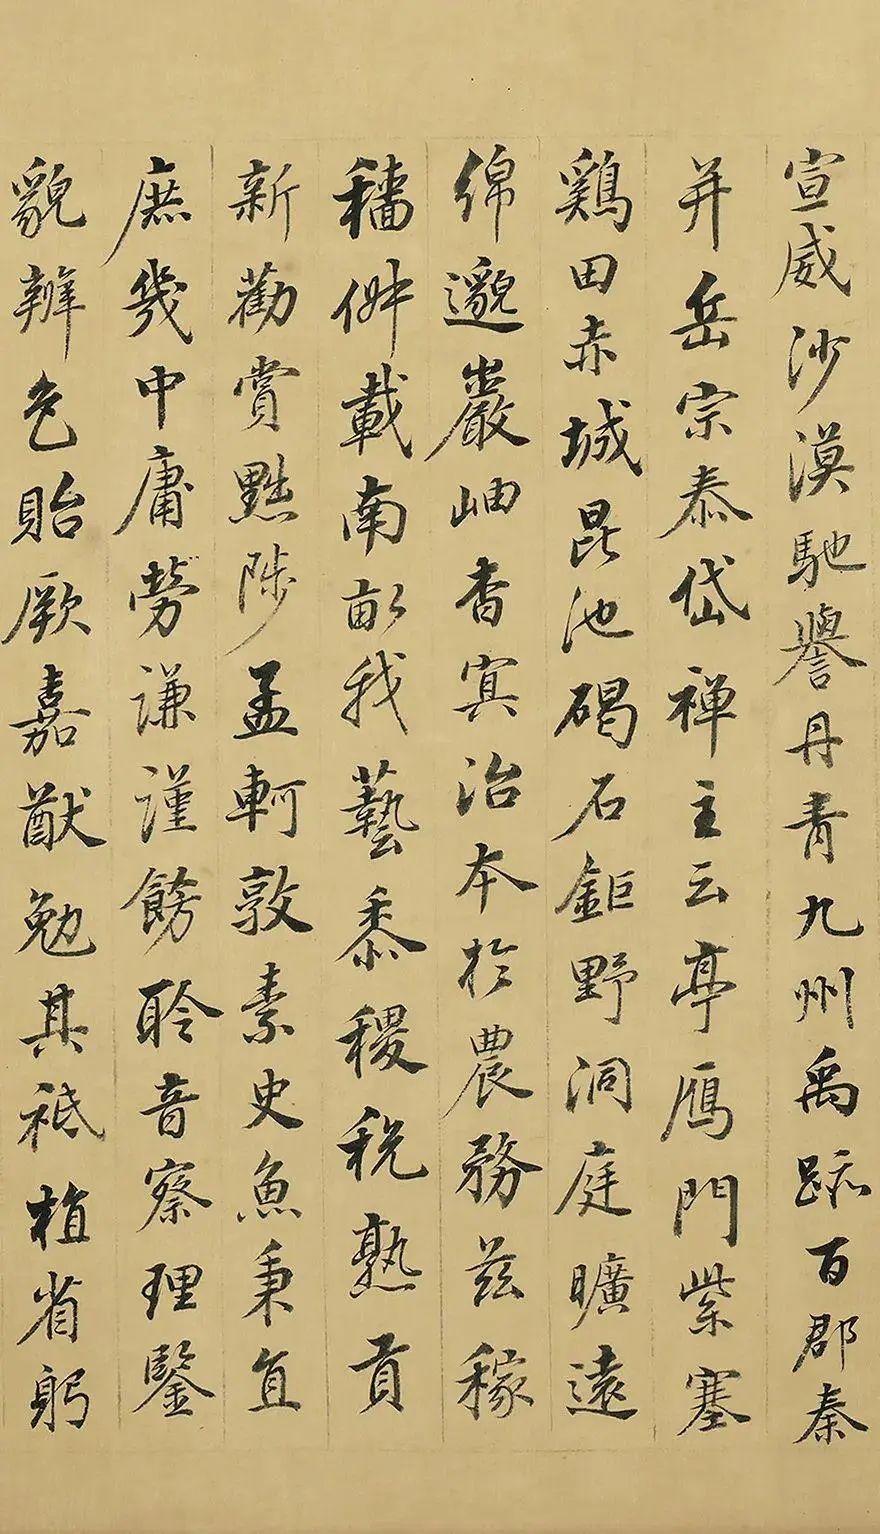 宣威沙漠馳譽丹青九州禹跡百郡秦
并岳宗泰岱禪主云亭鴈門紫塞
鷄田赤城昆池碣石鉅野洞庭曠遠
綿邈巖岫杳冥治本於農務茲稼
穡俶載南畝我藝黍稷稅熟貢
新勸賞黜陟孟軻敦素史魚秉直
庶幾中庸勞謙謹飭聆音察理鑒
貌辨色貽厥嘉猷勉其祗植省躬